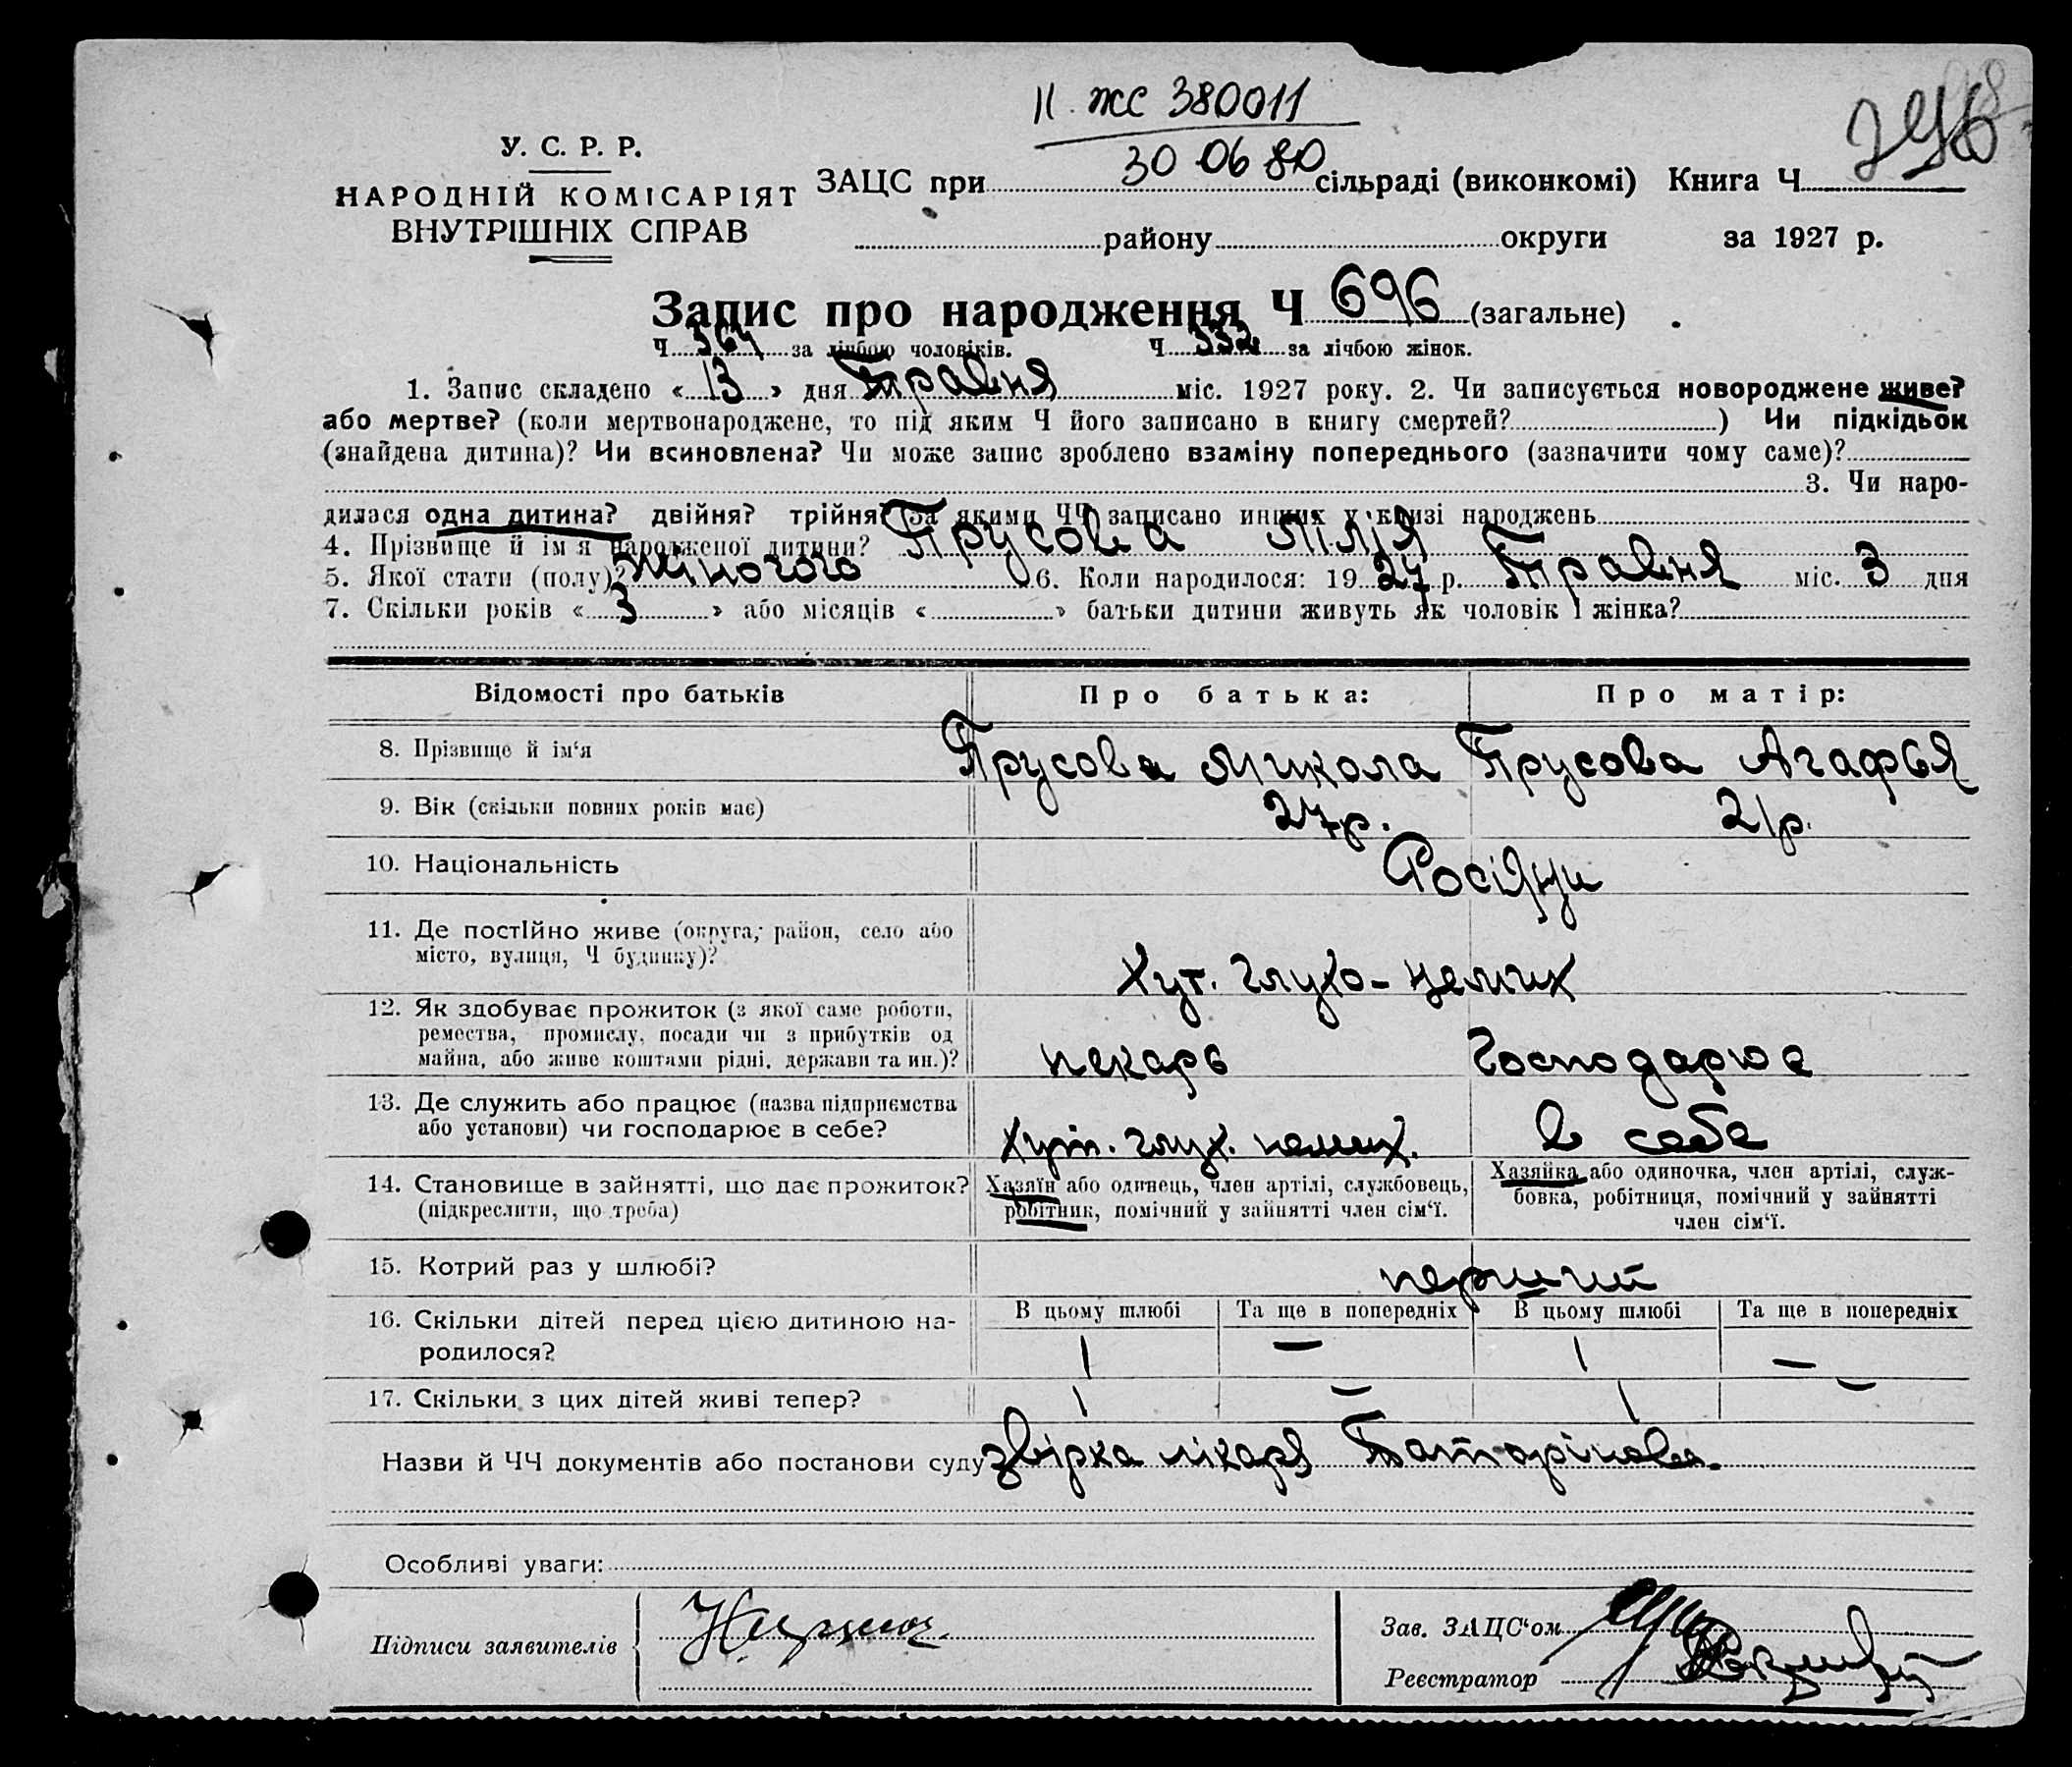 II. ЖС 380011
30 06 80
У. С. Р. Р.
НАРОДНІЙ КОМІСАРІЯТ
ВНУТРІШНІХ СПРАВ
ЗАЦС при сільраді (виконкомі) Книга Ч
району округи за 1927 р.
Запис про народження Ч 696 (загальне)
Ч 364 за лічбою чоловіків. Ч 332 за лічбою жінок.
1. Запис складено « 13 » дня Травня міс. 1927 року. 2. Чи записується новороджене живе?
або мертве? (коли мертвонароджене, то під яким Ч його записано в книгу смертей? ) Чи підкідьок
(знайдена дитина)? Чи всиновлена? Чи може запис зроблено взаміну попереднього (зазначити чому саме)?
3. Чи наро-
дилася одна дитина? двійня? трійня? За якими ЧЧ записано инших у книзі народжень
4. Прізвище й ім'я народженої дитини? Прусова Лілія
5. Якої стати (полу)? Жіночого 6. Коли народилося: 1927 р. Травня міс. 3 дня
7. Скільки років « 3 » або місяців « » батьки дитини живуть як чоловік і жінка?
Відомості про батьків Про батька: Про матір:
8. Прізвище й ім'я Прусова Микола Прусова Агафья
9. Вік (скільки повних років має) 27 р. 21 р.
10. Національність Росіяни
11. Де постійно живе (округа, район, село або
місто, вулиця, Ч будинку)? Хут. Глухо-немих
12. Як здобуває прожиток (з якої саме роботи,
ремества, промислу, посади чи з прибутків од
майна, або живе коштами рідні, держави та ин.)? пекарь Господарює
13. Де служить або працює (назва підприємства
або установи) чи господарює в себе? Хут. глух. немих. в себе
14. Становище в зайнятті, що дає прожиток?
(підкреслити, що треба)
Хазяїн або одинець, член артілі, службовець,
робітник, помічний у зайнятті член сім'ї.
Хазяйка або одиночка, член артілі, служ-
бовка, робітниця, помічний у зайнятті
член сім'ї.
15. Котрий раз у шлюбі? перший
16. Скільки дітей перед цією дитиною на-
родилося?
В цьому шлюбі Та ще в попередніх В цьому шлюбі Та ще в попередніх
1 — 1 —
17. Скільки з цих дітей живі тепер? 1 — 1 —
Назви й ЧЧ документів або постанови суду звірка лікаря
Особливі уваги:
Підписи заявителів
Зав. ЗАЦС'ом
Реєстратор